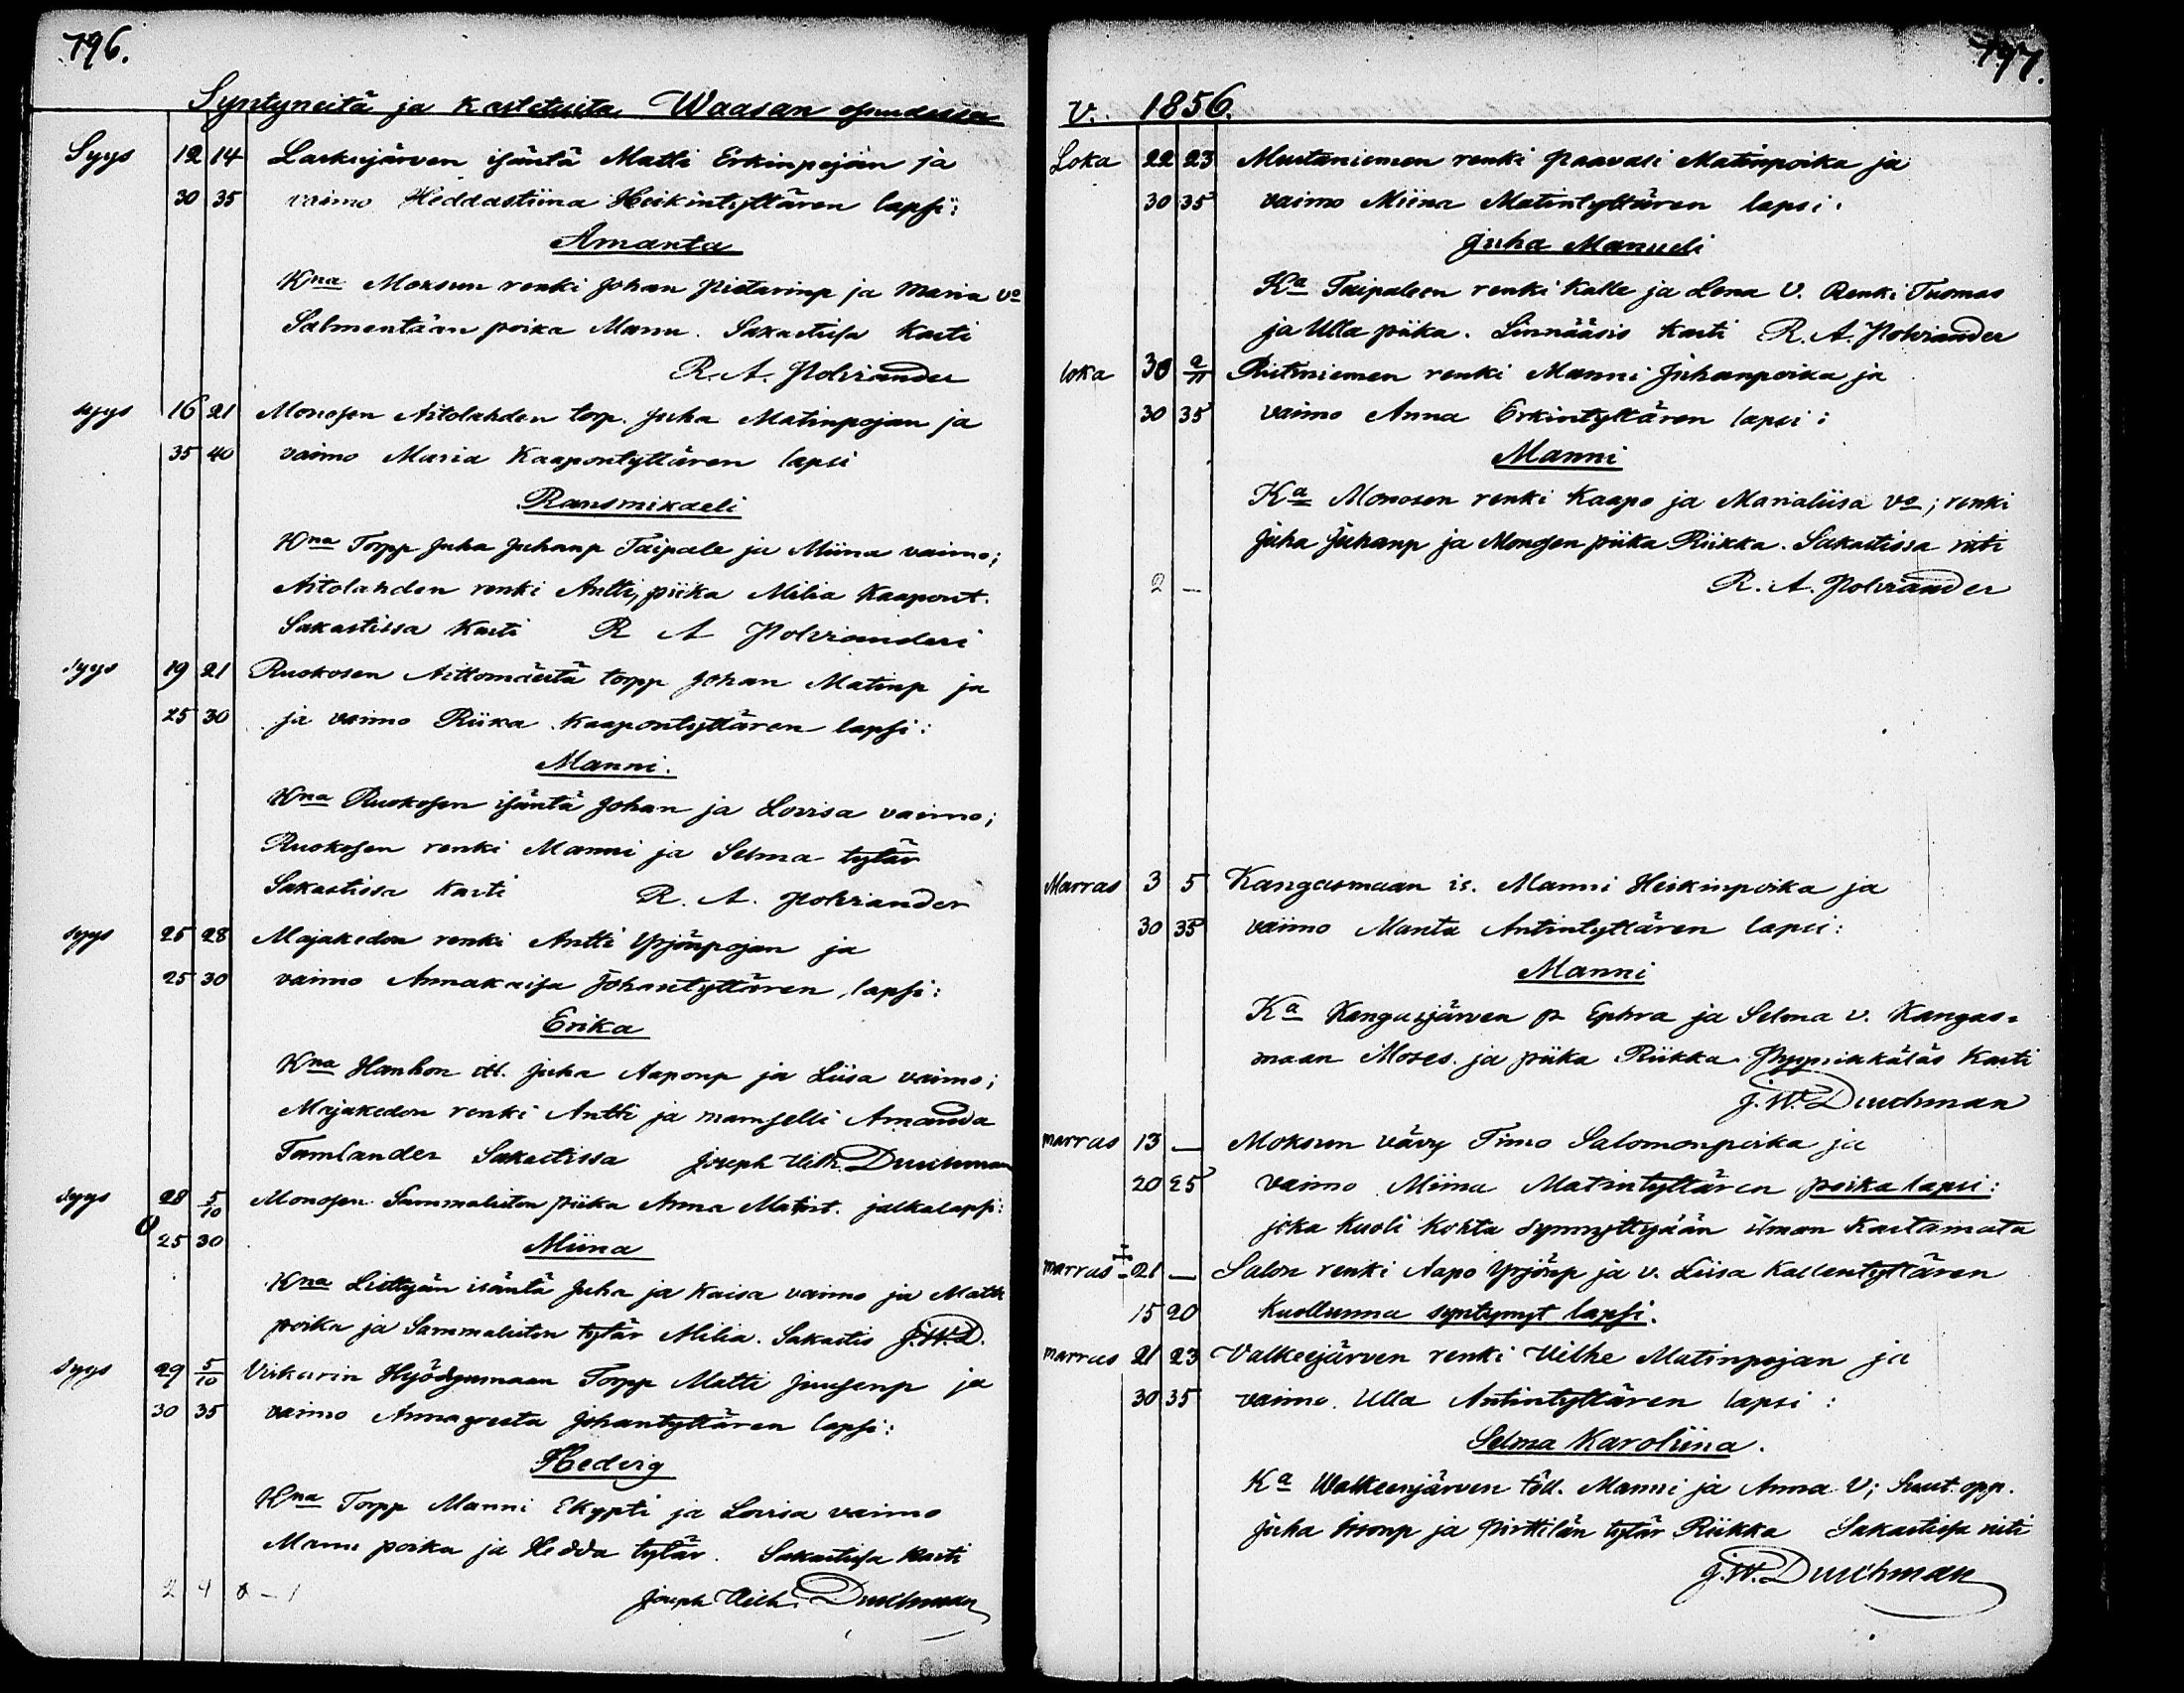 796.
Syntyneitä ja Kastetuita Waasan
Syys 12 14 Laskujärven isäntä Matti Erkinpojan ja
30 35 vaimo Heddastiina Heikintyttären lapsi:
Amanta
Kna Moksun renki Johan Pietarinp ja Maria vo
Salmentaan poika Manu. Sakastisa Kasti
R. A. Polviander
syys 16 21 Monosen Aitolahden torp. Juha Matinpojan ja
35 40 vaimo Maria Kaapontyttären lapsi
Ransmikaeli
Kna Torpp Juha Juhanp Taipale ja Miina vaimo;
Aitolahden renki Antti, piika Milia Kaapont.
Sakastissa Kasti R A Polvianderi
syys 19 21 Ruokosen torpp Johan Matinp ja
25 30 ja vaimo Riika Kaapontyttären lapsi:
Manni.
Kna Ruokosen isäntä Johan ja Lovisa vaimo;
Ruokosen renki Manni ja Selma tytär
Sakastissa Kasti R. A. Polviander
syys 25 28 Majakedon renki Antti Yrjönpojan ja
25 30 vaimo Annakaisa Johantyttären lapsi:
Erika
Kna Hanhon itl. Juha Aaponp ja Liisa vaimo;
Majakedon renki Antti ja mamselli Amanda
Tamlander Sakastissa Joseph Vilh. Duchman
syys 28 5/10 Monosen Sammaliston piika Anna Matint. jalkalapsi:
25 30 Miina
Kna Liettyän isäntä Juha ja Kaisa vaimo ja Matti
poika ja Sammaliston tytär Milia. Sakastis J.W.D.
syys 29 5/10 Viikarin Hyödynmaan Torpp Matti Juusenp ja
30 35 vaimo Annagreeta Johantyttären lapsi:
Hedvig
Kna Torpp Manni Ekypti ja Lovisa vaimo
Manu poika ja Hedda tytär. Sakastisa Kasti
2 4 0 – 1 Joseph Vilh. Duchman
797.
V. 1856.
Loka 22 23 Mustaniemen renki Paavali Matinpoika ja
30 35 vaimo Miina Matintyttären lapsi:
Juha Manueli
Ka Taipaleen renki Kalle ja Lena V. Renki Tuomas
ja Ulla piika. Linnääsis Kasti R. A. Polviander
loka 30 2/11 Rietniemen renki Manni Juhanpoika ja
30 35 vaimo Anna Erkintyttären lapsi:
Manni
Ka Monosen renki Kaapo ja Marialiisa vo; renki
Juha Juhanp ja Monosen piika Riikka. Sakastissa risti
2 — R. A. Polviander
Marras 3 5 Kangasmaan is. Manni Heikinpoika ja
30 35 vaimo Manta Antintyttären lapsi:
Manni
Ka Kangasjärven p. Ephra ja Selma v. Kangas=
maan Moses ja piika Riikka Kasti
J. W. Duchman
marras 13 — Moksun vävy Timo Salomonpoika ja
20 25 vaimo Miina Matintyttären poika lapsi:
joka kuoli kohta synnyttyään ilman Kastamata
marras 21 — Salon renki Aapo Yrjönp ja v. Liisa Kallentyttären
15 20 Kuollunna syntynyt lapsi.
marras 21 23 Valkeejärven renki Vilhe Matinpojan ja
30 35 vaimo Ulla Antintyttären lapsi:
Selma Karoliina.
Ka Walkeenjärven töll. Manni ja Anna V; Suut. opp.
Juha Iisonp ja Pirttilän tytär Riikka Sakastisa risti
J. W. Duchman